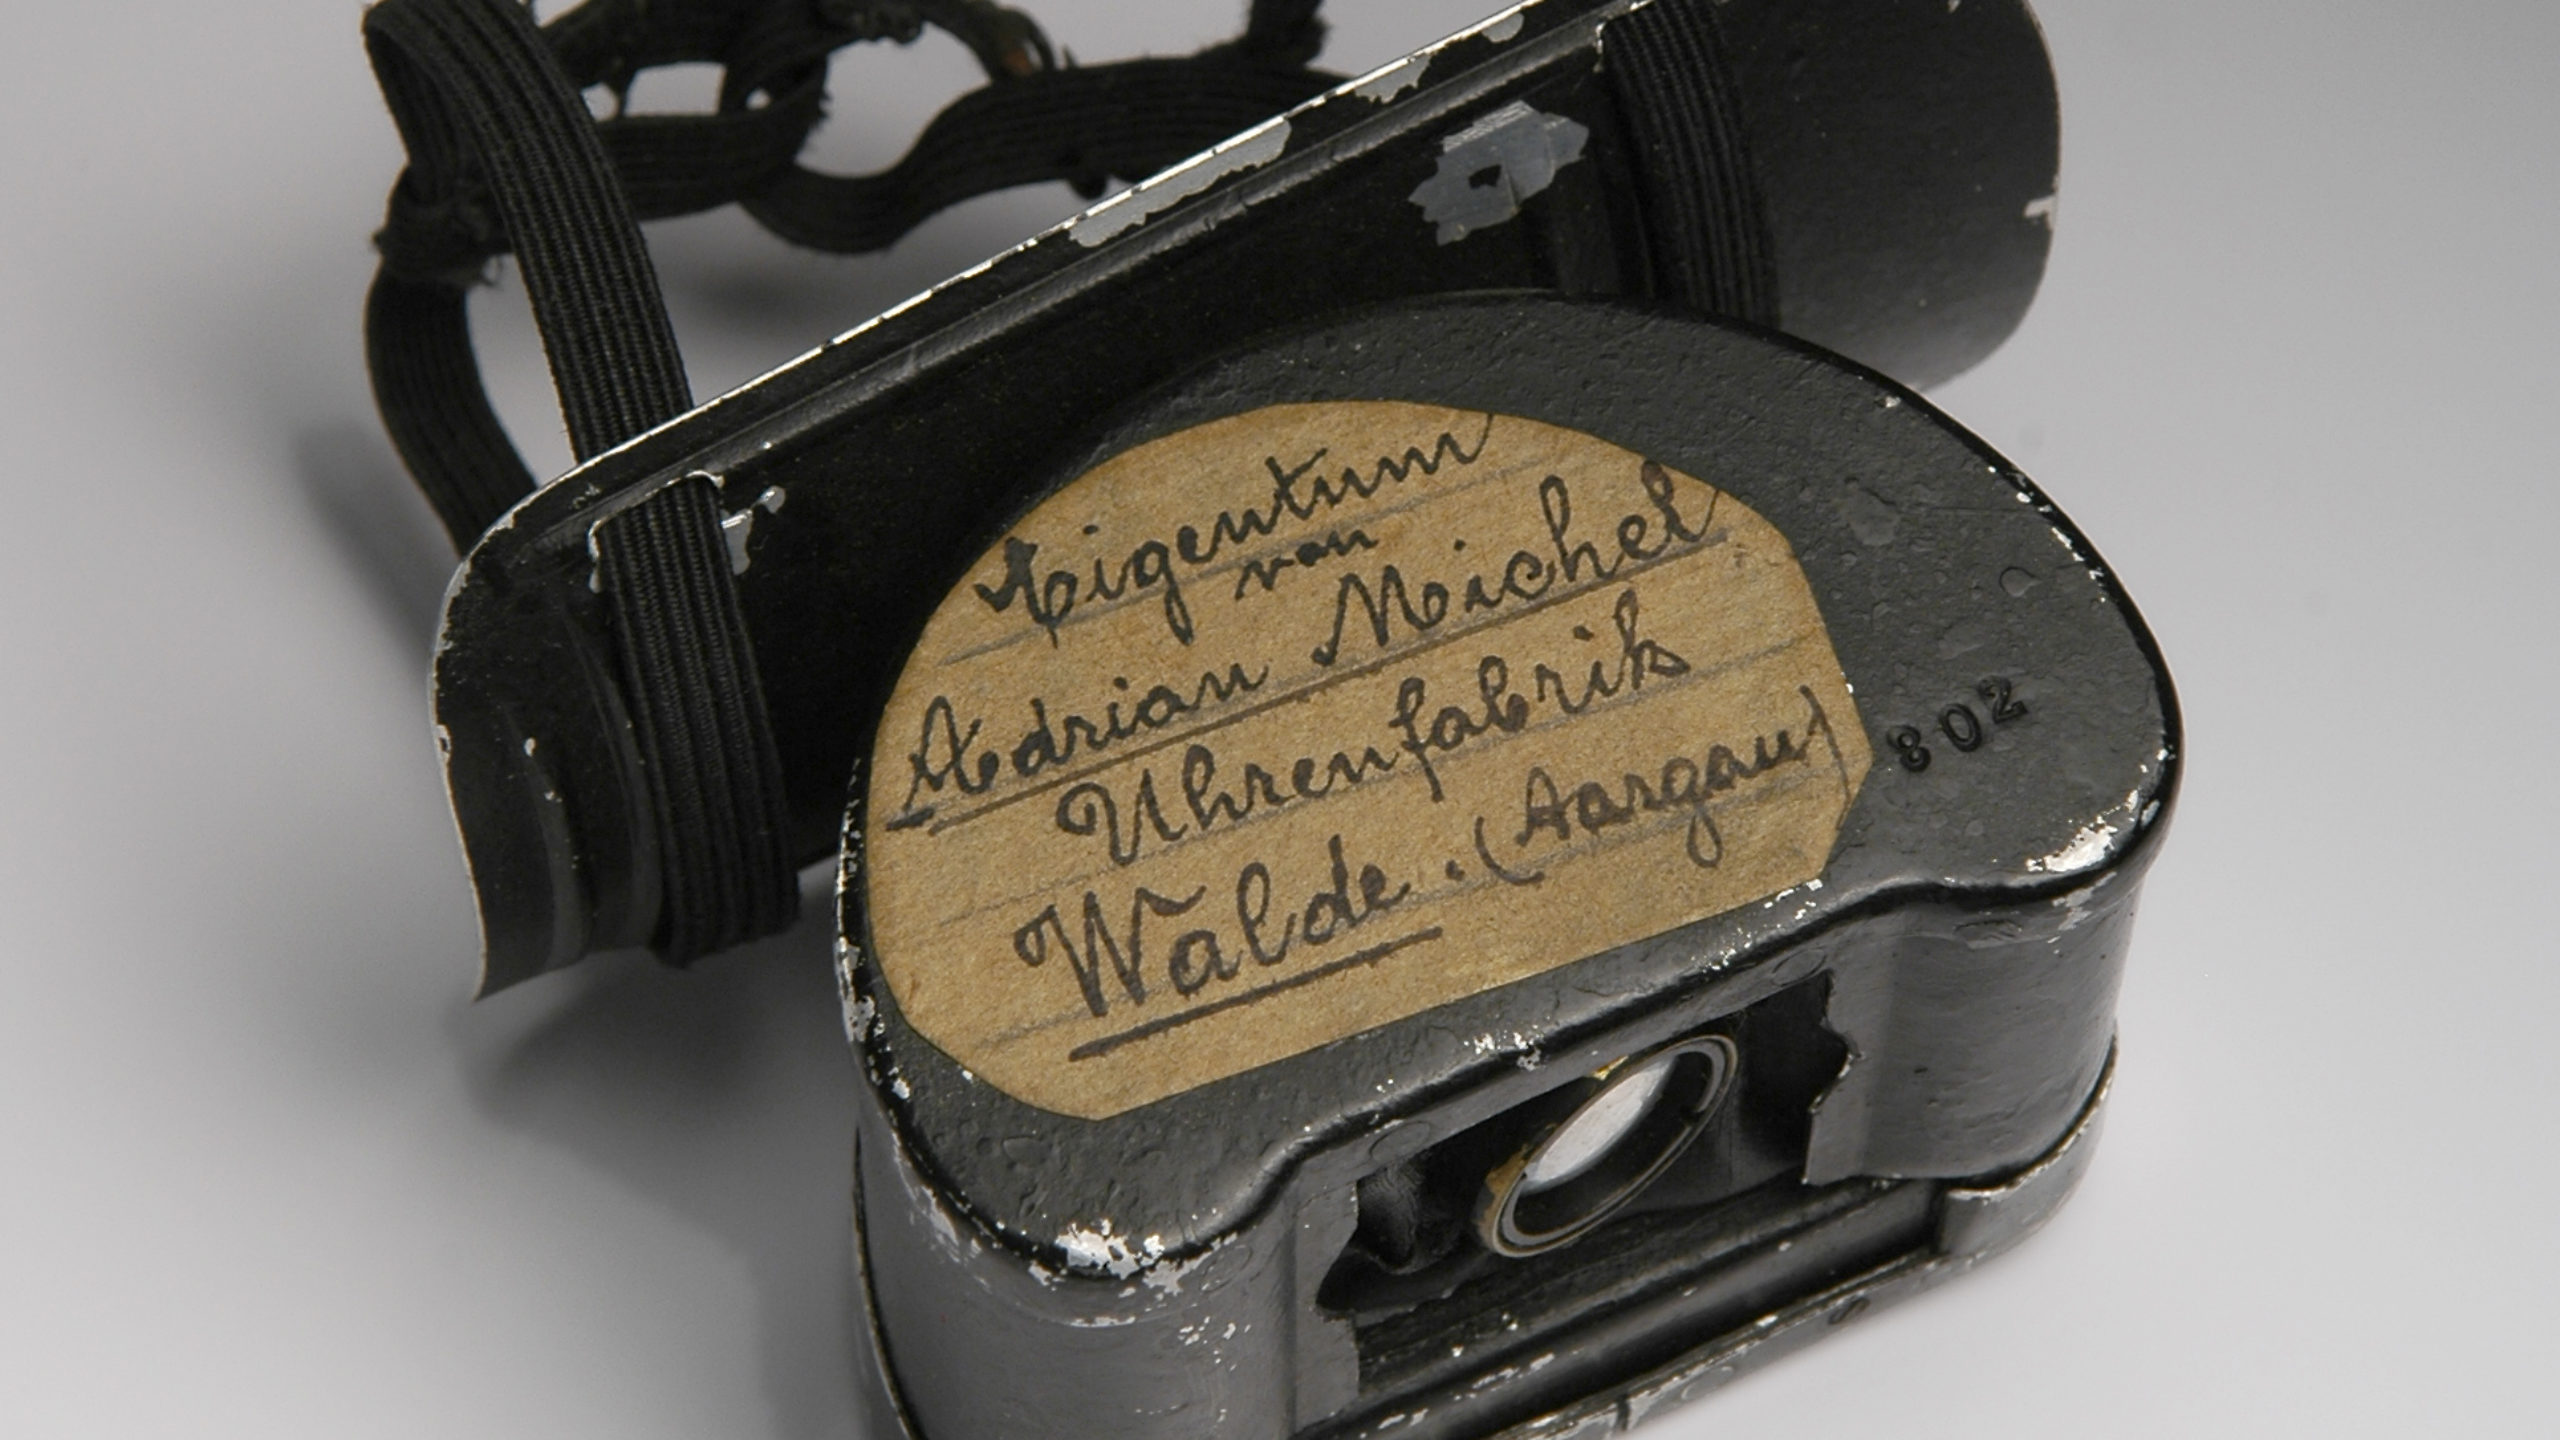 Eigentum
von
Adrian Michel
Uhrenfabrik
Walde . (Aargau)
802